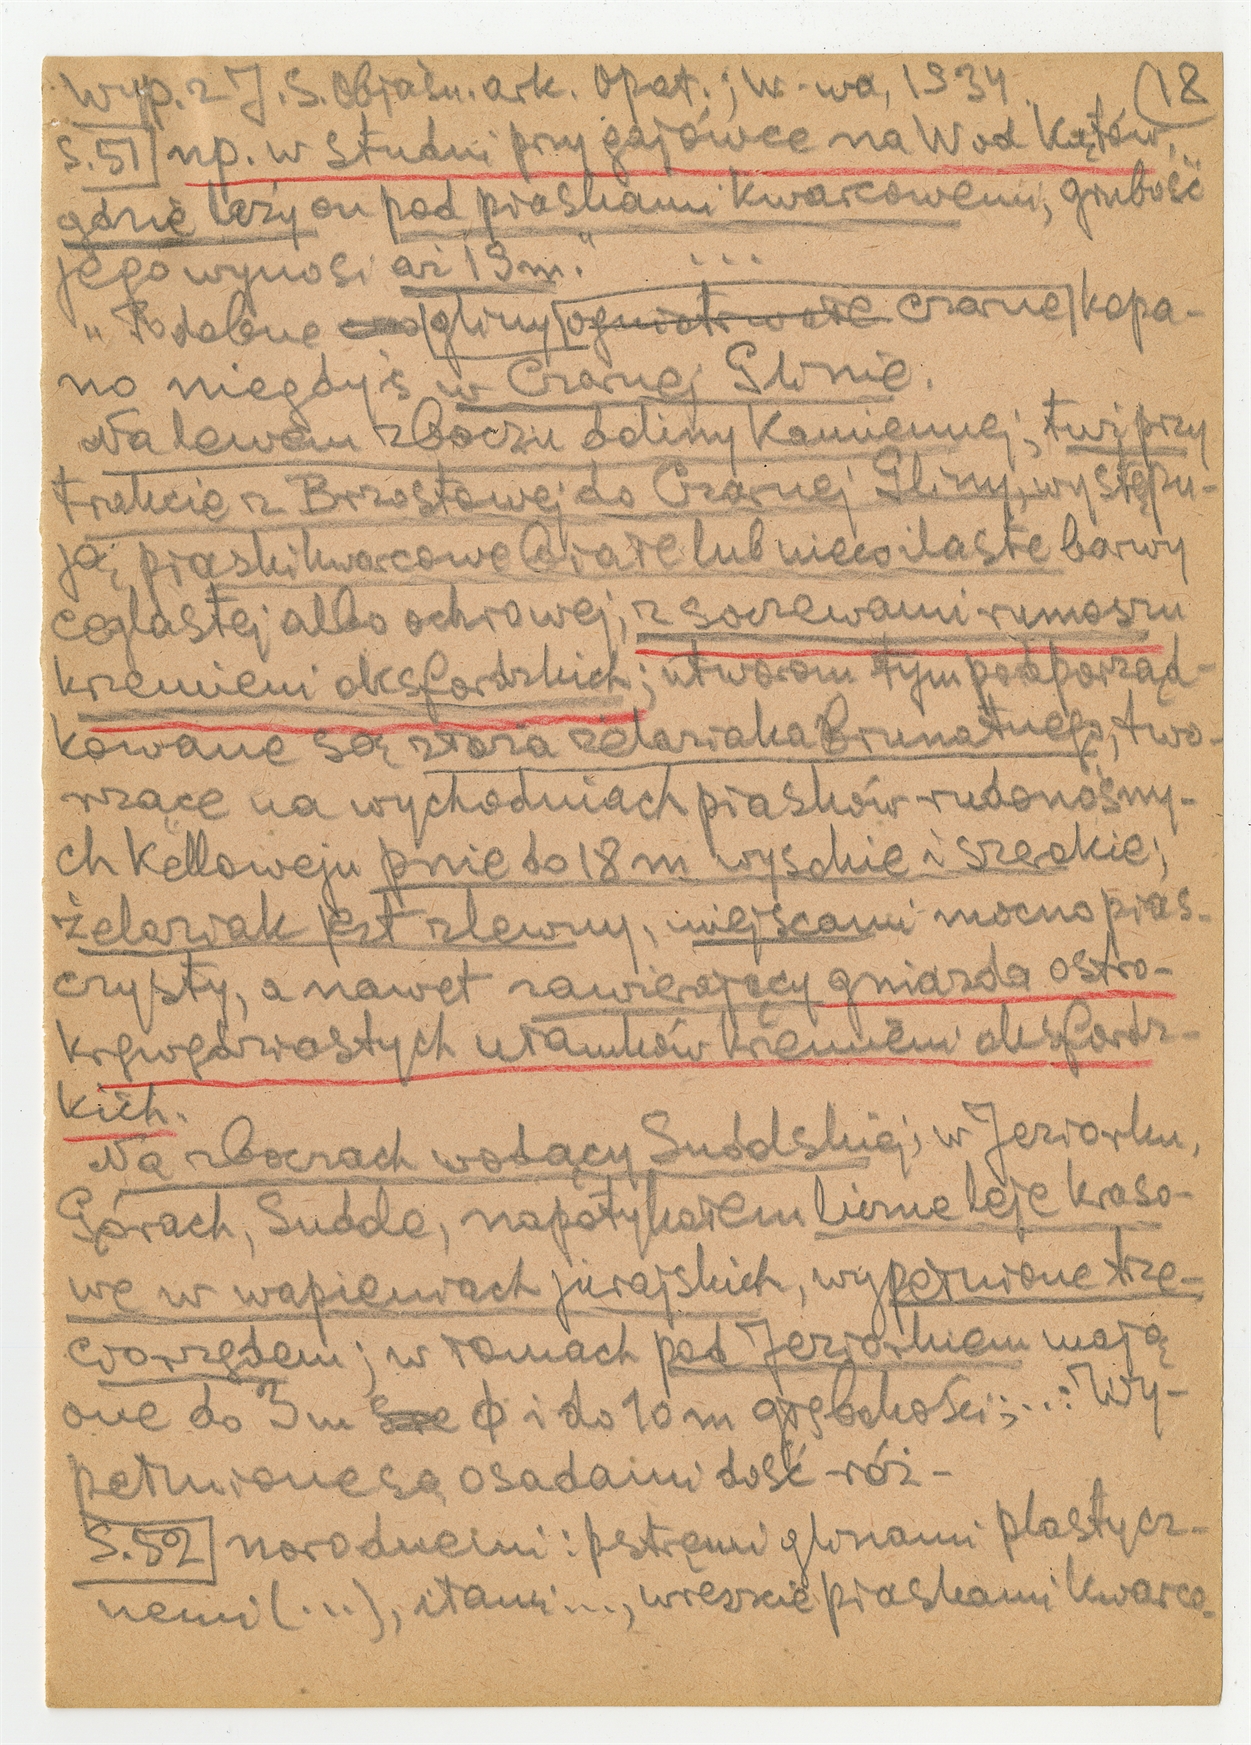 Wyp. z J. S. Objaśn. ark. Opat.; W-wa, 1934 (18
S.51 np. w studni przy gajówce na Wod Kątów,
gdzie leży on pod piaskami kwarcowemi, grubość
jego wynosi aż 19 m." ...
"Podobne gliny ogniotrwałe czarne kopa-
no niegdyś w Czarnej Glinie.
Na lewem zboczu doliny Kamiennej, tuż przy
trakcie z Brzostowej do Czarnej Gliny, występu-
ją piaski kwarcowe białe lub nieco ilaste barwy
ceglastej albo ochrowej, z soczewami rumoszu
krzemieni oksfordzkich; utworom tym podporząd-
kowane są złoża żelaziaka brunatnego, two-
rzące na wychodniach piasków rudonośny-
ch Kelloweju pnie do 18 m wysokie i szerokie;
żelaziak jest zlewny, miejscami mocno pias-
czysty, a nawet zawierający gniazda ostro-
krawędziastych ułamków krzemieni oksfordz-
kich.
Na zboczach wodący Sudolskiej, w Jeziorku,
Górach, Sudole, napotykałem liczne leje kraso-
we w wapieniach jurajskich, wypełnione trze-
ciorzędem; w łomach pod Jeziorkiem mają
one do 3 m Φ i do 10 m głębokości; ...: Wy-
pełnione są osadami dość róż-
S.52 norodnemi: pstremi glinami plastycz-
nemi (...), iłami ..., wreszcie piaskami kwarco-